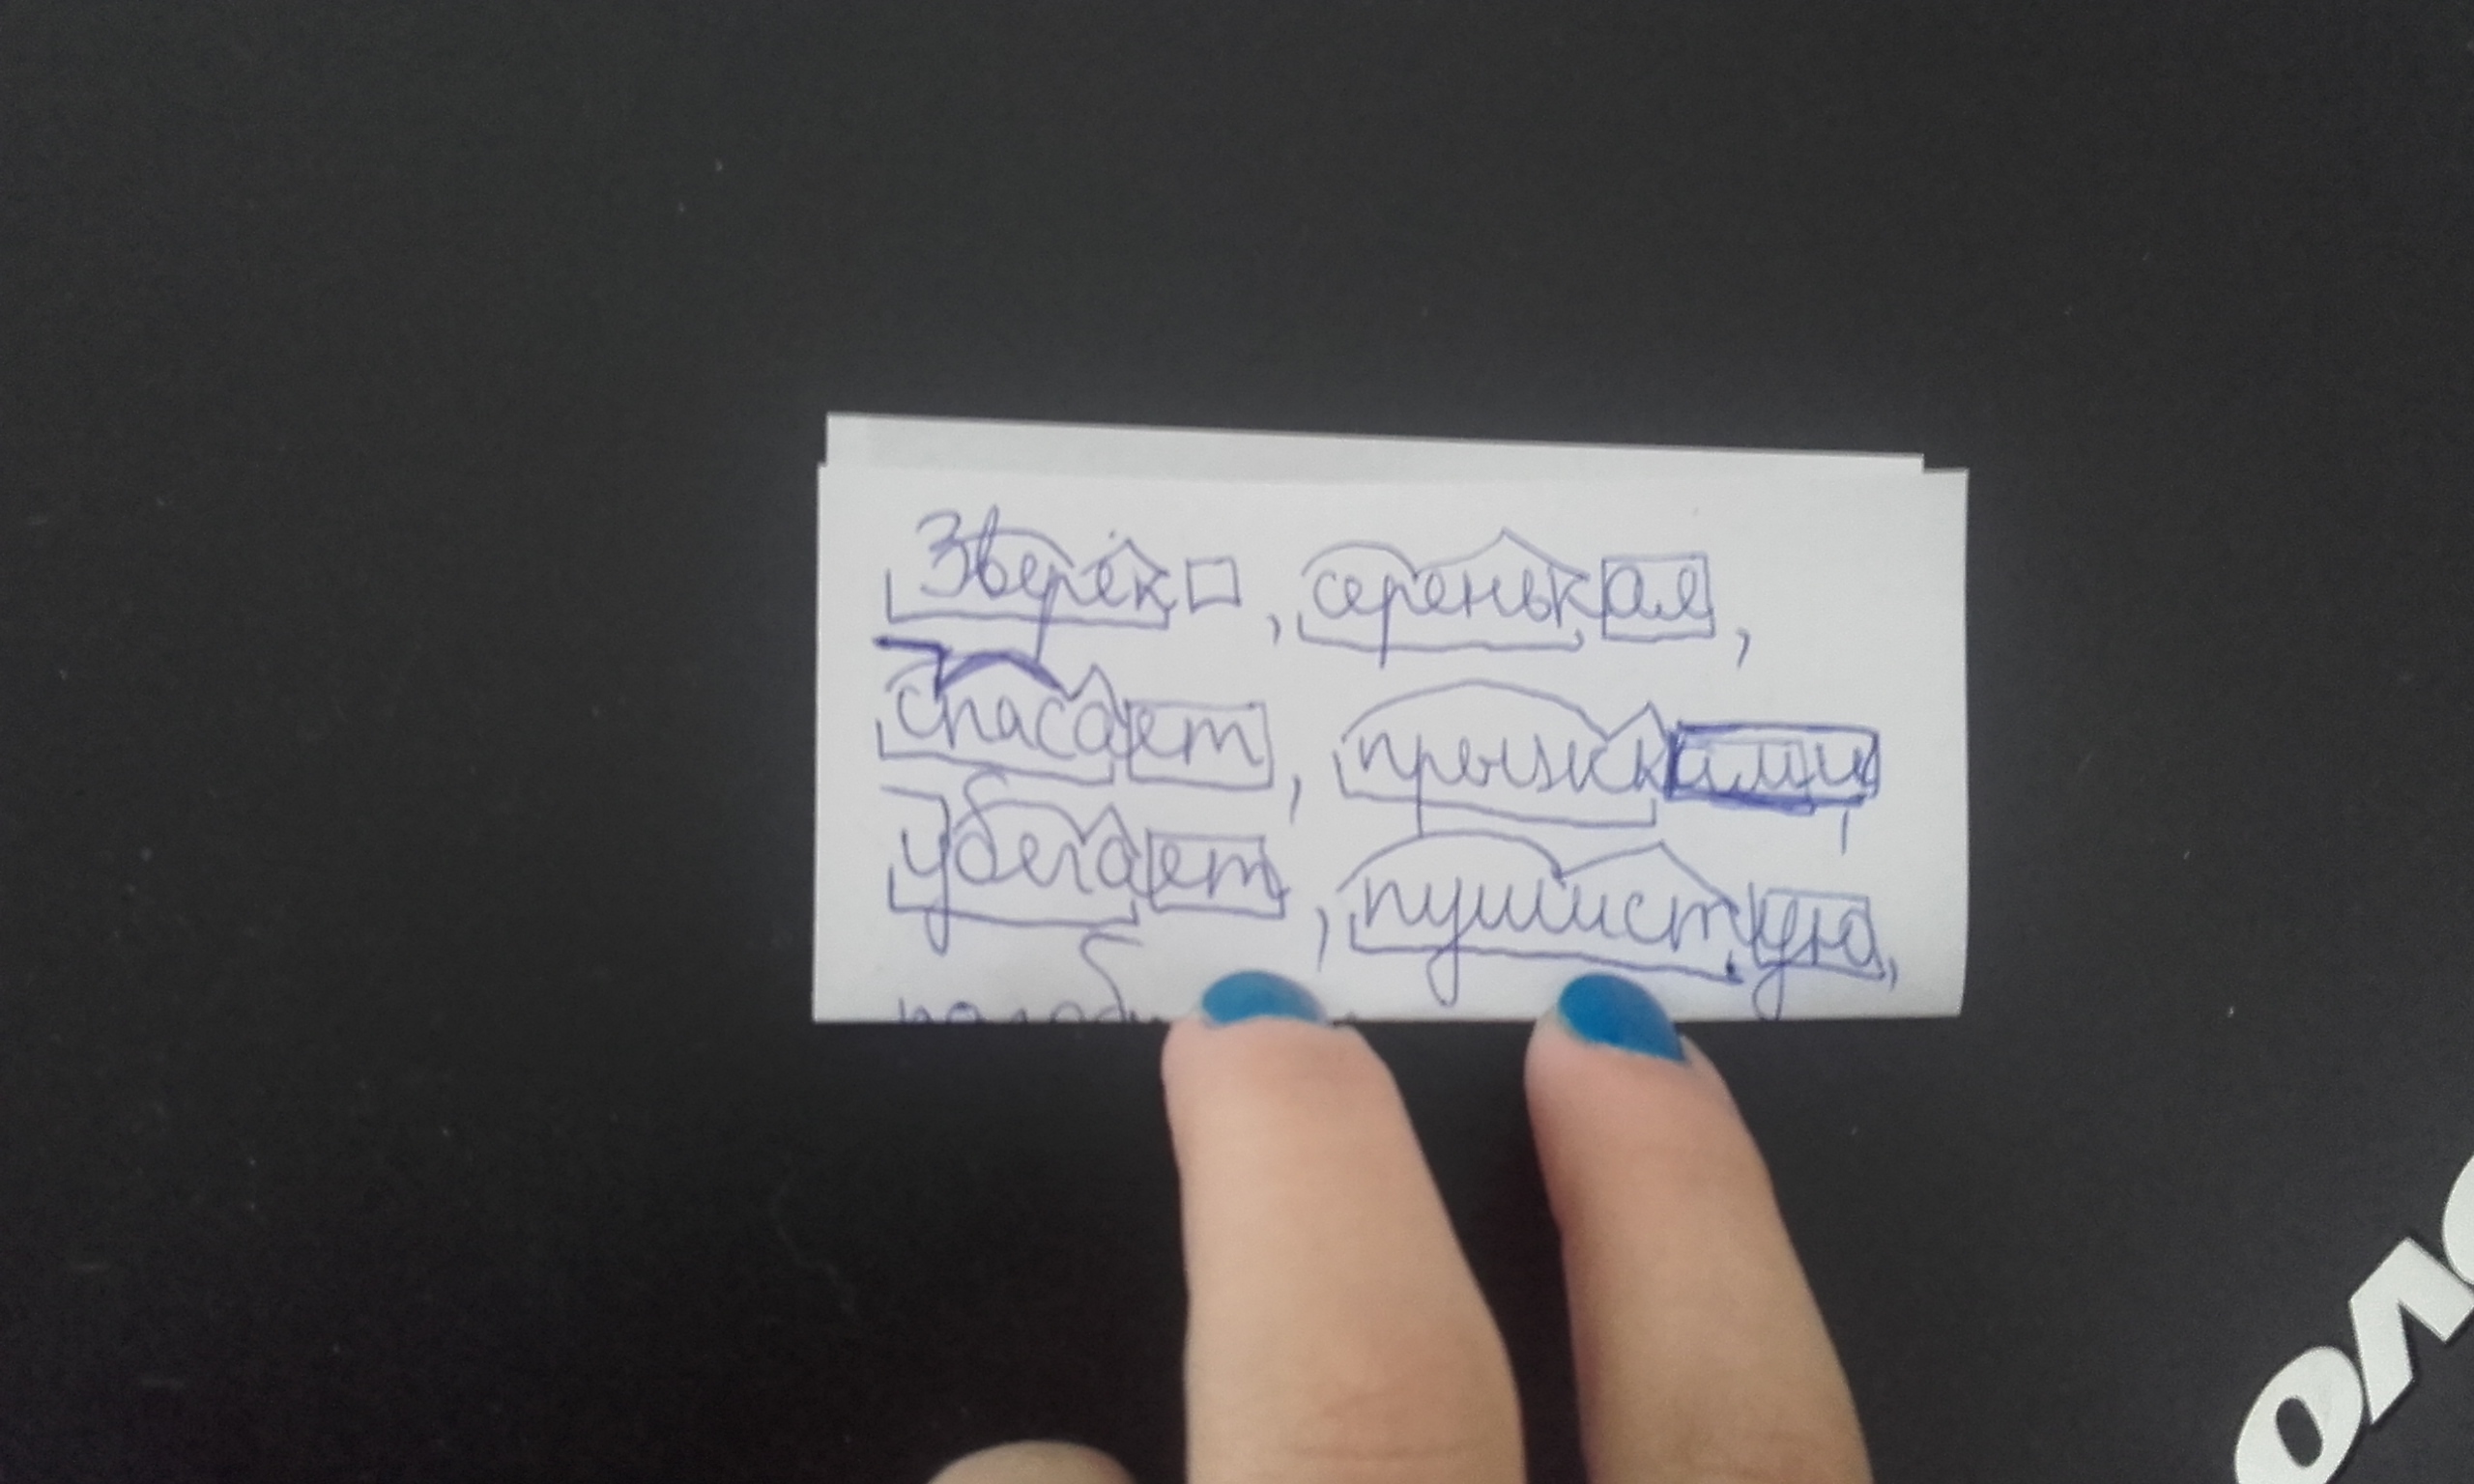 Зверёк , серенькая ,
спасает , прыжками ,
убегает , пушистую,